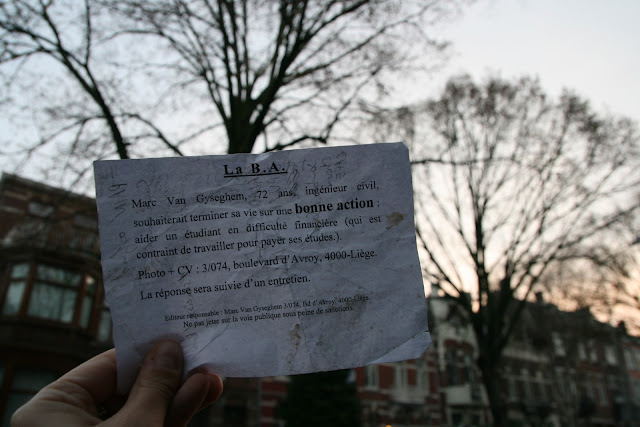 La B.A.
Marc Van Gyseghem, 72 ans, ingénieur civil,
souhaiterait terminer sa vie sur une bonne action :
aider un étudiant en difficulté financière (qui est
contraint de travailler pour payer ses études.).
Photo + CV : 3/074, boulevard d'Avroy, 4000-Liège.
La réponse sera suivie d'un entretien.
Editeur responsable : Marc Van Gyseghem 3/074, Bd d'Avroy, 4000-Liège.
Ne pas jeter sur la voie publique sous peine de sanctions.